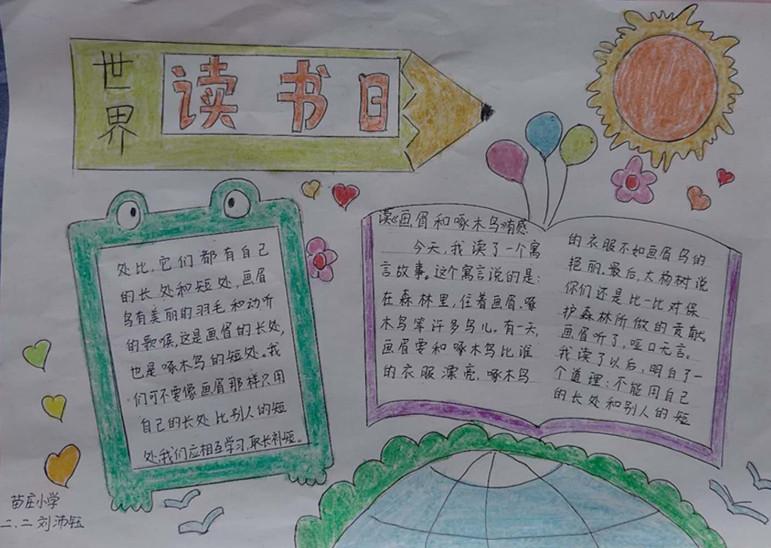 世界
读书日
读《画眉和啄木鸟》有感
今天,我读了一个寓
言故事。这个寓言说的是:
在森林里,住着画眉、啄
木鸟等许多鸟儿。有一天,
画眉要和啄木鸟比谁
的衣服漂亮,啄木鸟
的衣服不如画眉鸟的
艳丽。最后,大杨树说
你们还是比一比对保
护森林所做的贡献。
画眉听了,哑口无言。
我读了以后,明白了一
个道理:不能用自己
的长处和别人的短
处比,它们都有自己
的长处和短处,画眉
鸟有美丽的羽毛和动听
的歌喉,这是画眉的长处,
也是啄木鸟的短处。我
们可不要像画眉那样只用
自己的长处比别人的短
处,我们应相互学习,取长补短。
苗庄小学
二.二刘沛钰